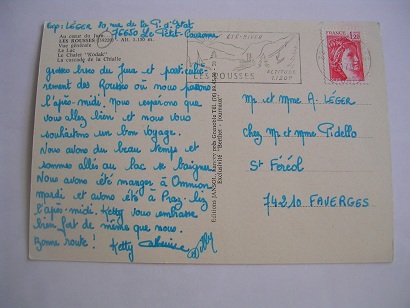 Exp: LÉGER 20, rue de la P.
76650 Le Petit-Couronne
Au cœur du Jura
LES ROUSSES (39220)
Alt. 1.120 m.
Vue générale
Le Lac
Le Chalet "Kodak"
La cascade de la Chaille
ÉTÉ-HIVER
LES ROUSSES
ALTITUDE
FRANCE
Grosses bises du Jura et particuliè-
rement des Rousses où nous passons
l'après-midi. Nous espérons que
vous allez bien et nous vous
souhaitons un bon voyage.
Nous avons du beau temps et
sommes allés au lac se baigner.
Nous avons été manger à
mardi et avons été à Praz-liz
l'après-midi. Ketty vous embrasse
bien fort de même que nous.
Bonne route! Ketty
Mr et Mme A. LÉGER
chez Mr et Mme Pidello
St Féréol
74210 FAVERGES